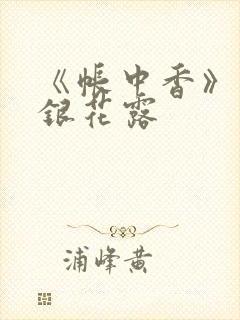 《帐中香》
银花露
浦峰黄